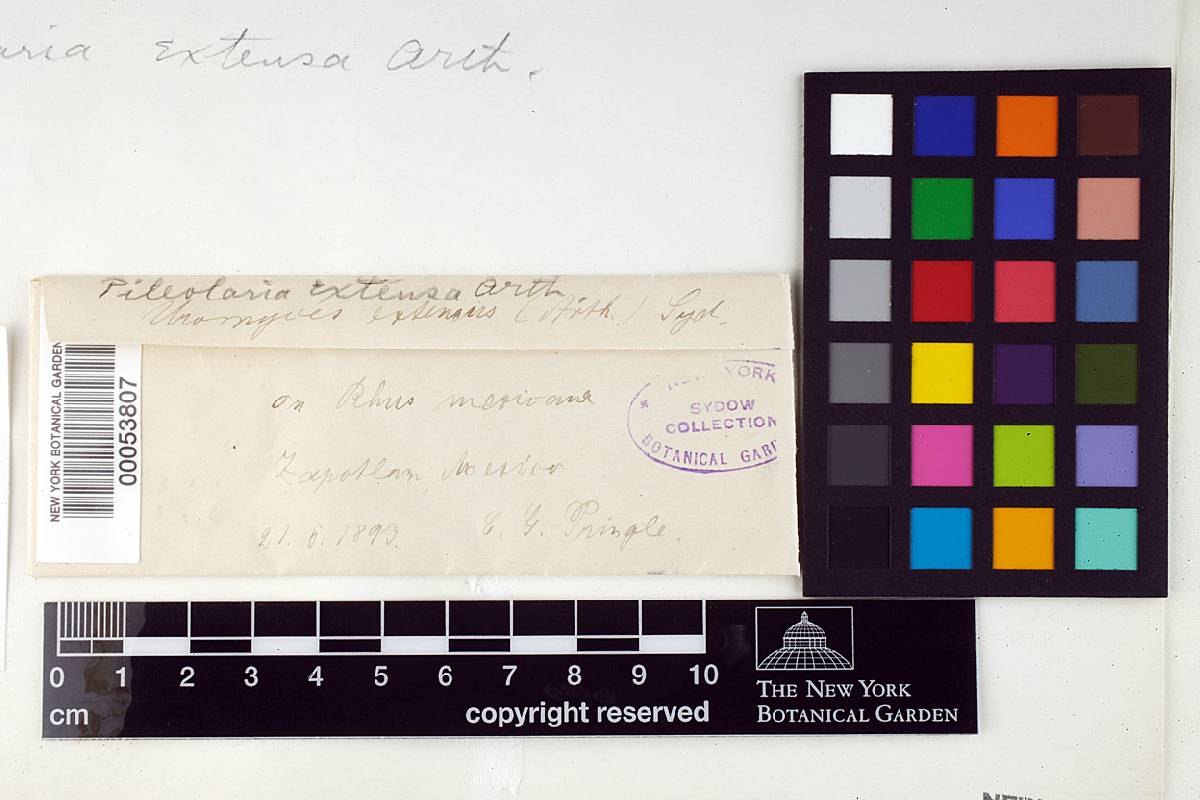 aria Extensa Arth.
Pileolaria Extensa Arth
Uromyces extensus (Arth.) Syd.
on Rhus mexicana
Zapotlan, Mexico
21. 5. 1893. C. G. Pringle.
NEW YORK BOTANICAL GARDEN
00053807
NEW YORK
* SYDOW
COLLECTION
BOTANICAL GARD
0 1 2 3 4 5 6 7 8 9 10
cm
copyright reserved
THE NEW YORK
BOTANICAL GARDEN